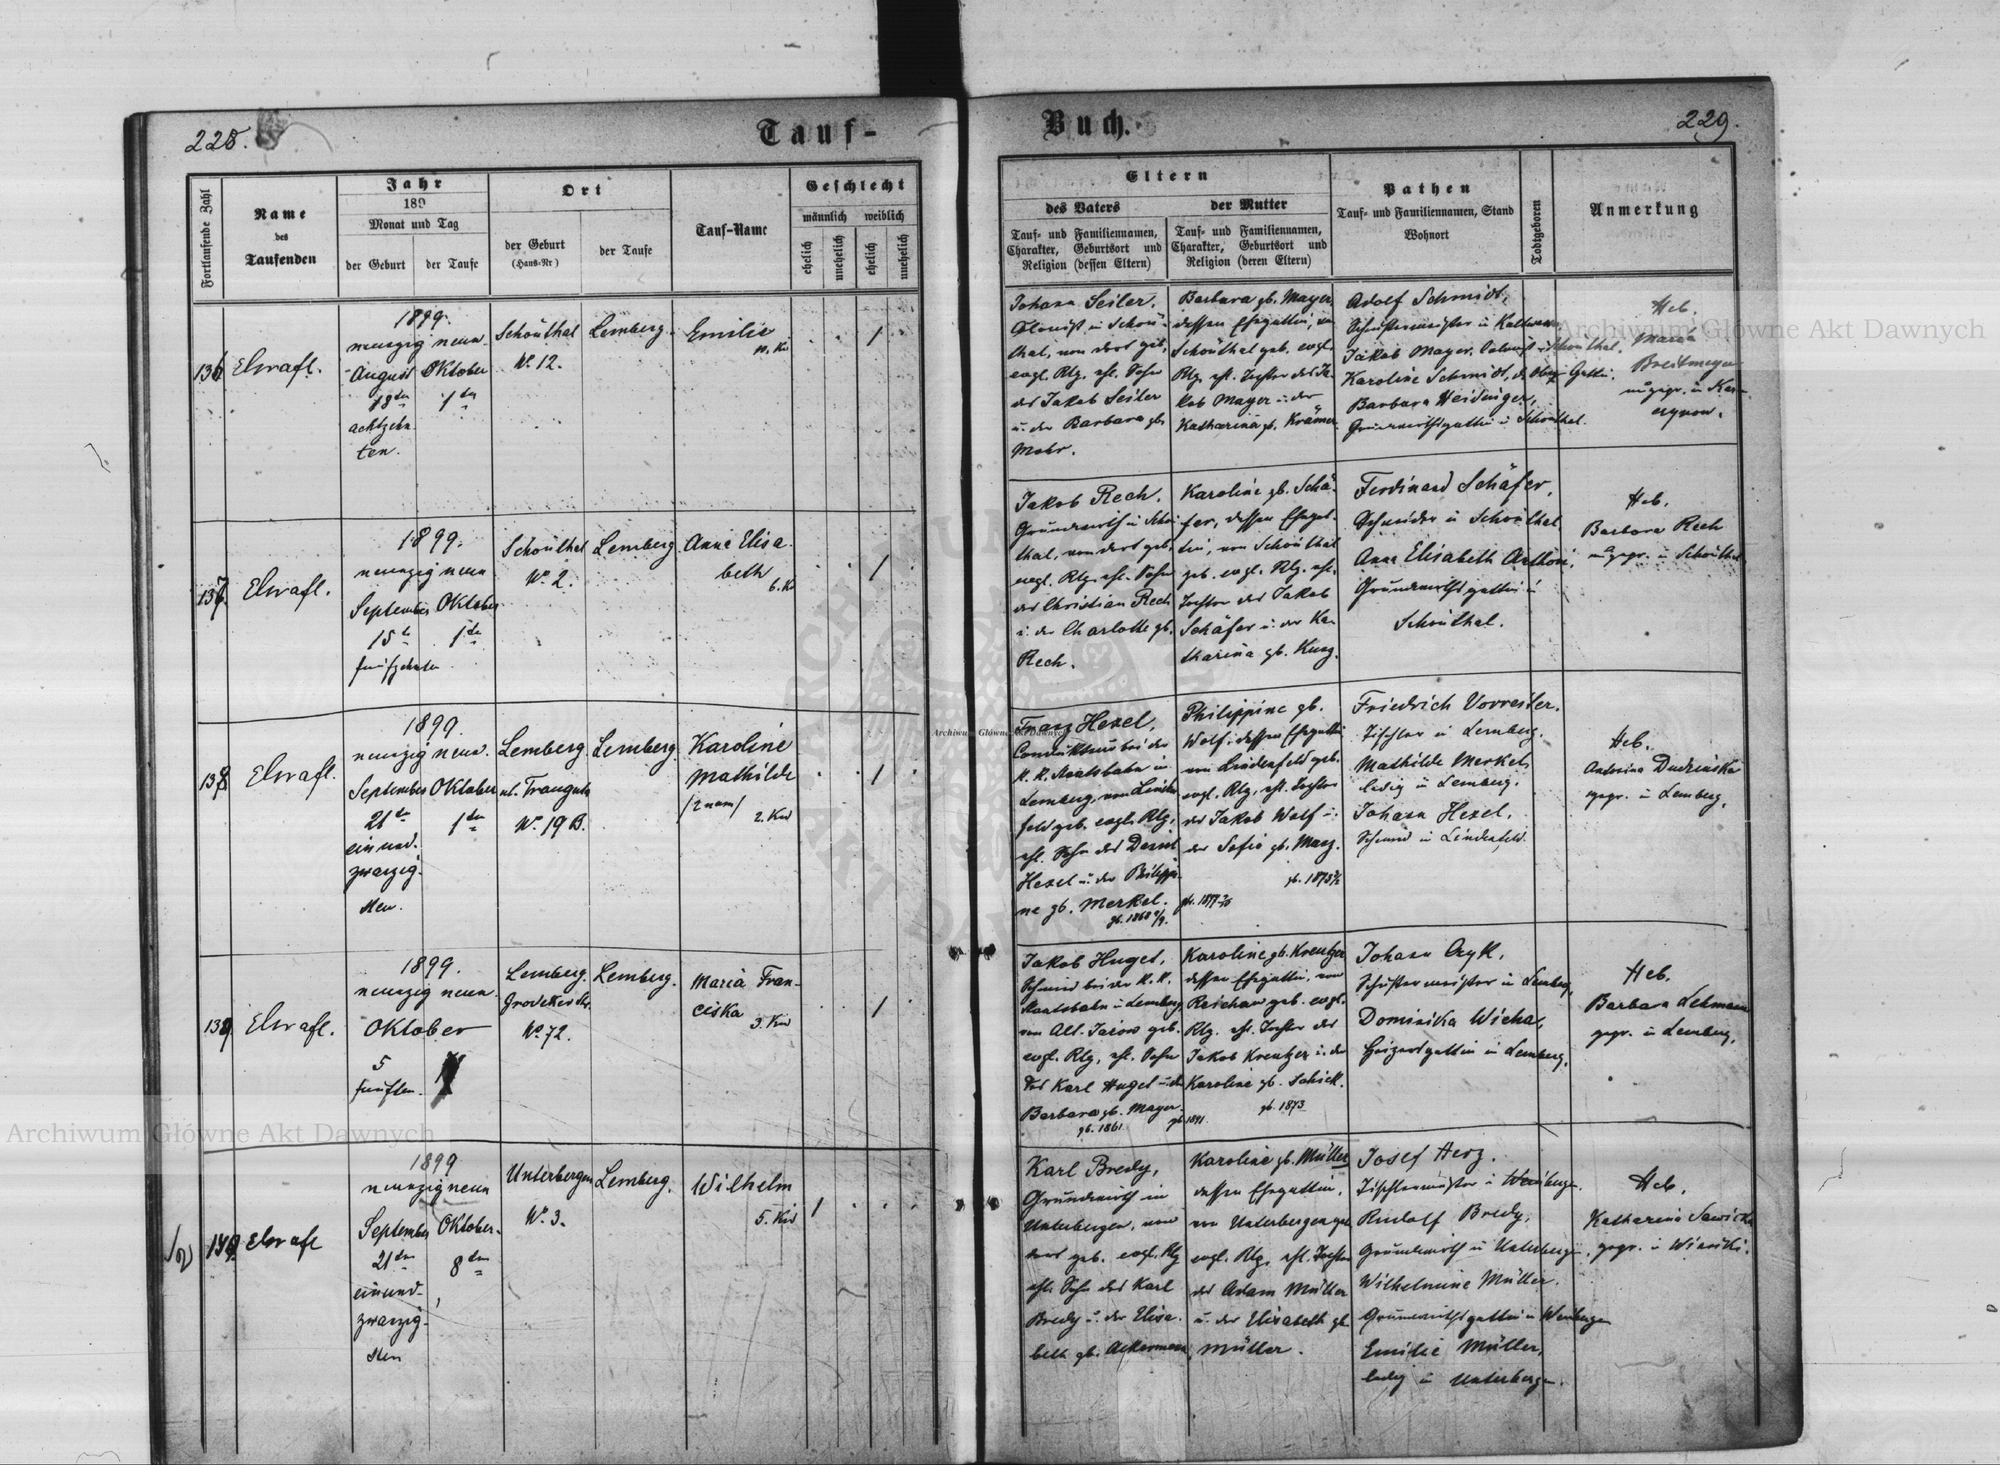 228.
Tauf-
Fortlaufende Zahl
Name
des
Taufenden
Jahr
189
Monat und Tag
der Geburt
der Taufe
Ort
der Geburt
(Haus-Nr)
der Taufe
Tauf-Name
Geschlecht
männlich
weiblich
ehelich
unehelich
ehelich
unehelich
136
1899.
neunzig neun
August Oktober
18ten 1ten
achtzehn
ten.
Schönthal
No. 12.
Lemberg.
Emilie
1
137.
1899.
neunzig neun
September Oktober
15t 1ten
fünfzehnten
Schönthal
No. 2.
Lemberg.
Anna Elisa
beth
6. Kd
1
138
1899.
neunzig neun.
September Oktober
21ten 1ten
einund-
zwanzig-
sten.
Lemberg.
No. 19 B.
Lemberg.
Karoline
Mathilde
2. Kind
1
139
1899.
neunzig neun.
Oktober
5
fünften.
Lemberg.
No. 72.
Lemberg.
Maria Fran-
ciska
3. Kind
1
140
1899
neunzig neun
September Oktober.
21ten 8ten
einund-
zwanzig-
sten
Unterbergen
No. 3.
Lemberg.
Wilhelm
5. Kind
1
Buch.
229.
Eltern
des Vaters
Tauf- und Familiennamen,
Charakter, Geburtsort und
Religion (dessen Eltern)
der Mutter
Tauf- und Familiennamen,
Charakter, Geburtsort und
Religion (deren Eltern)
Pathen
Tauf- und Familiennamen, Stand
Wohnort
Todtgeboren
Anmerkung
Johann Seiler,
Colonist in Schön-
thal, von dort geb.
evgl. Rlg. ehl. Sohn
des Jakob Seiler
u. der Barbara gb.
Mohr.
Barbara gb. Mayer,
dessen Ehegattin, in
Schönthal geb. evgl.
Rlg. ehl. Tochter des Ja-
kob Mayer u. der
Katharina gb. Krämer.
Adolf Schmidt,
Schustermeister in
Jakob Mayer, Colonist in Schönthal.
Karoline Schmidt, Gattin.
Barbara Heidinger,
Grundwirthsgattin in Schönthal.
Heb.
Maria
Breitmeyer
ungepr. in
Jakob Rech,
Grundwirth in Schön-
thal, von dort geb.
evgl. Rlg. ehl. Sohn
des Christian Rech
u. der Charlotte gb.
Rech.
Karoline gb. Schä-
fer, dessen Ehegat-
tin, von Schönthal
geb. evgl. Rlg. ehl.
Tochter des Jakob
Schäfer u. der Ka-
tharina gb. Kurz.
Ferdinand Schäfer,
Schneider in Schönthal
Anna Elisabeth
Grundwirthsgattin in
Schönthal.
Heb.
Barbara Rech
ungepr. in Schönthal
Franz Hexel,
Condukteur bei der
k. k. Staatsbahn in
Lemberg, von Linden-
feld geb. evgl. Rlg.
ehl. Sohn des Daniel
Hexel u. der Philippi-
ne gb. Merkel.
Philippine gb.
Wolf, dessen Ehegattin
von Lindenfeld geb.
evgl. Rlg. ehl. Tochter
des Jakob Wolf u.
der Sofie gb. Manz.
Friedrich Vorreiter.
Tischler in Lemberg.
Mathilde Merkel,
ledig in Lemberg.
Johann Hexel,
Schmied in Lindenfeld.
Heb.
Antonina Dudzinska
gepr. in Lemberg.
Jakob Hugel,
Schmied bei der k. k.
Staatsbahn in Lemberg,
von Alt Jazow geb.
evgl. Rlg. ehl. Sohn
des Karl Hugel u. der
Barbara gb. Mayer.
gb. 1861
Karoline gb. Kreutzer
dessen Ehegattin, von
Reichau geb. evgl.
Rlg. ehl. Tochter des
Jakob Kreutzer u. der
Karoline gb. Schick.
gb. 1873
Johann Czyk,
Schustermeister in Lemberg,
Dominika Wicha,
Heizersgattin in Lemberg.
Heb.
Barbara Lehmann
gepr. in Lemberg.
Karl Bredy,
Grundwirth in
Unterbergen, von
dort geb. evgl. Rlg
ehl. Sohn des Karl
Bredy u. der Elisa-
beth gb. Ackermann
Karoline gb. Müller
dessen Ehegattin,
von Unterbergen geb.
evgl. Rlg. ehl. Tochter
des Adam Müller
u. der Elisabeth gb.
Müller.
Josef Herz.
Tischlermeister in Weinbergen.
Rudolf Bredy,
Grundwirth in Unterbergen
Wilhelmine Müller.
Grundwirthsgattin in Weinbergen
Emilie Müller,
ledig in Unterbergen.
Heb.
Katharina Sawicka
gepr. in Winniki.
Archiwum Główne Akt Dawnych
Archiwum Główne Akt Dawnych
Archiwum Główne Akt Dawnych